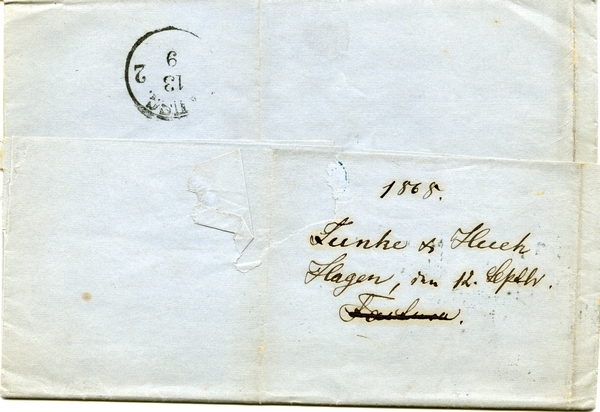 1868.
Funke & Hueck
Hagen, den 12. Septbr.
Factura.
2
13
9